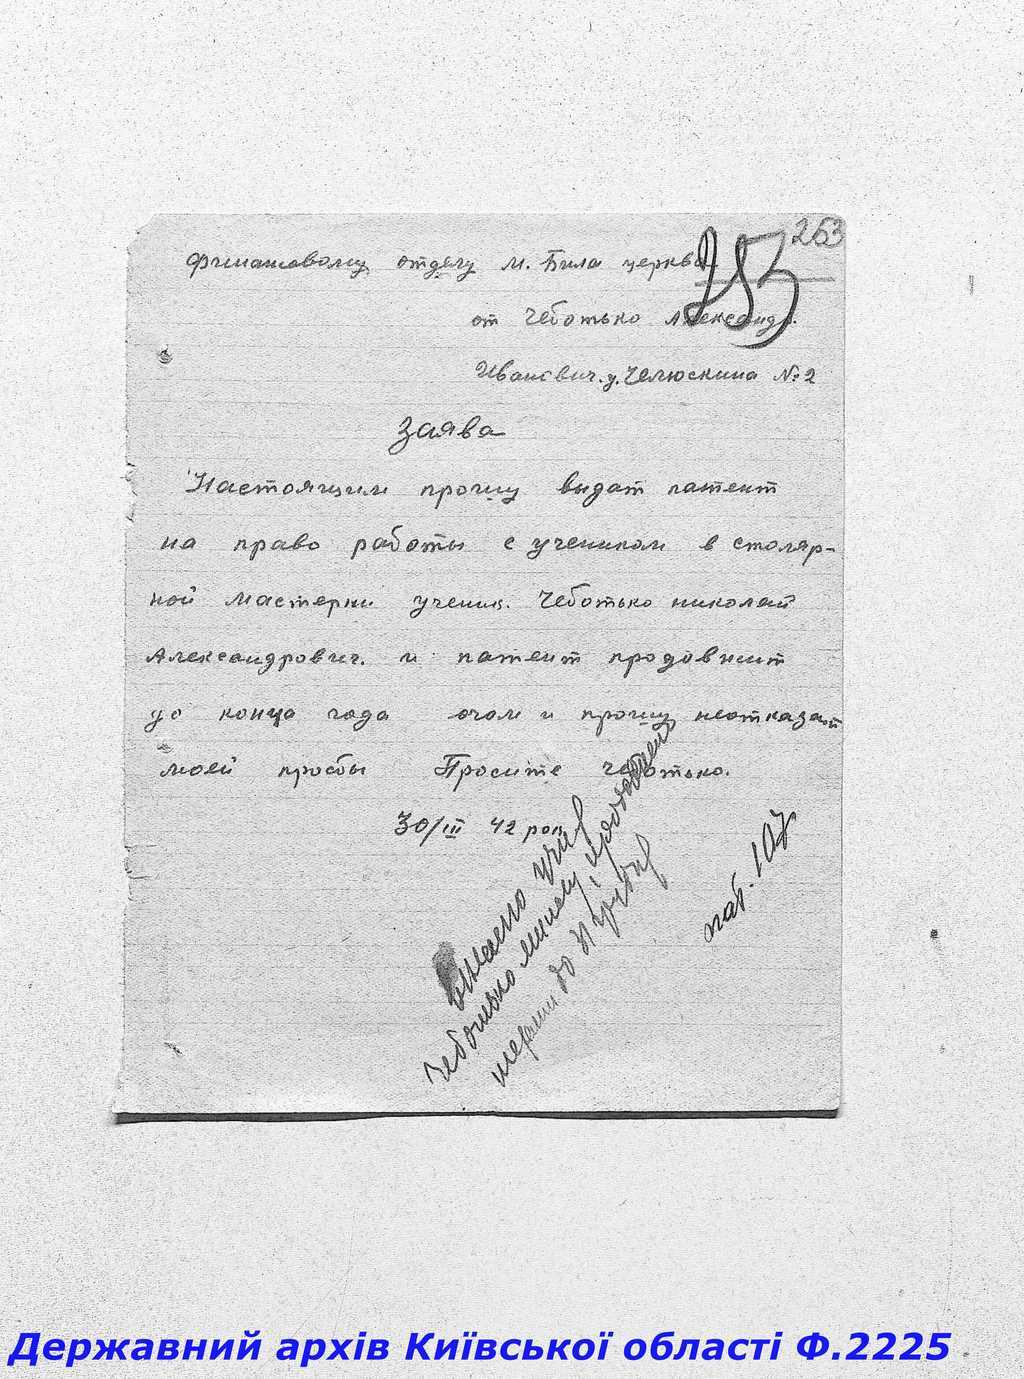 263
253
Финансовому отделу м. Била церква.
от Чеботько Александр.
Иванович. у. Челюскина № 2
Заява
Настоящим прошу выдат патент
на право работы с учеником в столяр-
ной мастерки ученик. Чеботько николай
Александрович. и патент продовжит
до конца года очом и прошу неотказат
моей прозбы Просите Чеботько.
30/III 42 рок
Чеботько
до 31 грудня
пат. 107
Державний архів Київської області Ф.2225